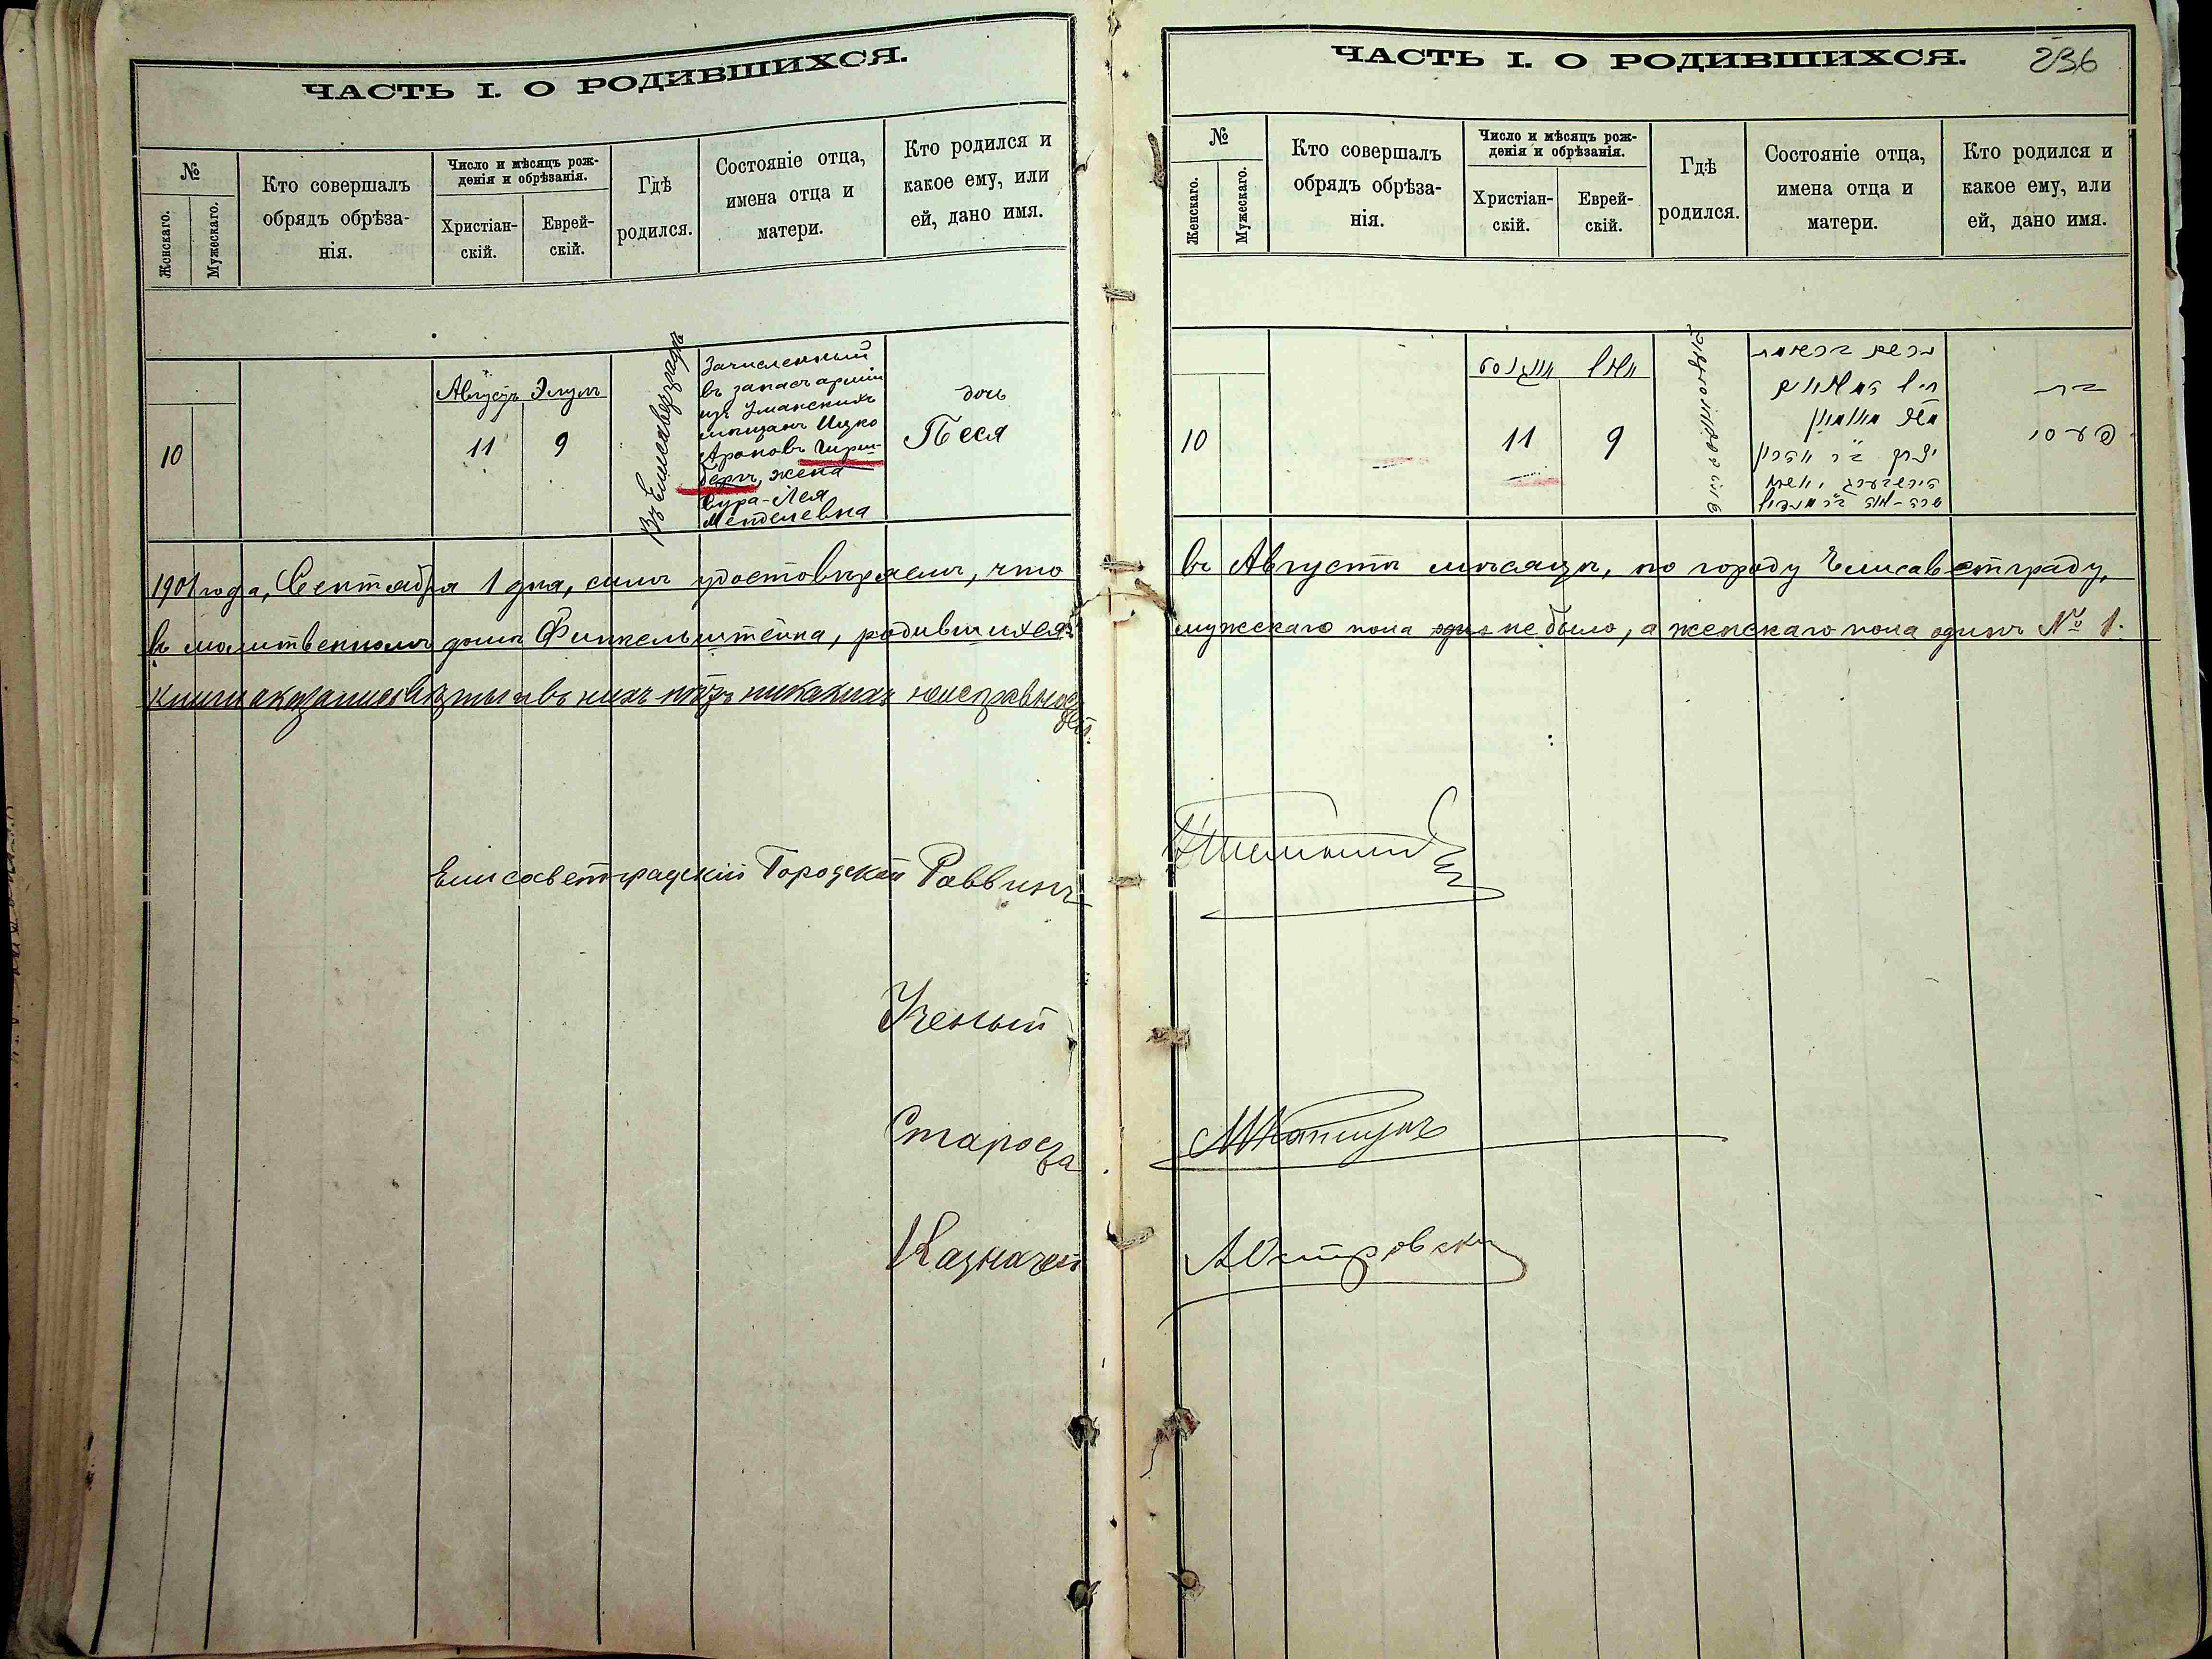 ЧАСТЬ I. О РОДИВШИХСЯ.
№
Женскаго.
Мужескаго.
Кто совершалъ
обрядъ обрѣза-
нія.
Число и мѣсяцъ рож-
денія и обрѣзанія.
Христіан-
скій.
Еврей-
скій.
Гдѣ
родился.
Состояніе отца,
имена отца и
матери.
Кто родился и
какое ему, или
ей, дано имя.
10
Августъ Элулъ
11 9
Въ Елисаветградѣ
Зачисленный
въ запасъ арміи
изъ Уманскихъ
мѣщанъ Ицко
Ароновъ Гирш-
бергъ, жена
Сура-Лея
Менделевна
дочь
Песя
1901 года, Сентября 1 дня, симъ удостовѣряемъ, что
въ молитвенномъ домѣ Финкельштейна, родившихся
книги въ нихъ нѣтъ никакихъ неисправнос
тей.
Елисаветградскій Городской Раввинъ
Ученый
Староста
Казначей
ЧАСТЬ I. О РОДИВШИХСЯ.
236
№
Женскаго.
Мужескаго.
Кто совершалъ
обрядъ обрѣза-
нія.
Число и мѣсяцъ рож-
денія и обрѣзанія.
Христіан-
скій.
Еврей-
скій.
Гдѣ
родился.
Состояніе отца,
имена отца и
матери.
Кто родился и
какое ему, или
ей, дано имя.
10
אויגוסט אלול
11 9
יצחק בר אהרן
הירשבערג
בת
פעסי
въ Августѣ мѣсяцѣ, по городу Елисаветграду,
мужескаго пола не было, а женскаго пола одинъ № 1.
АОстровски